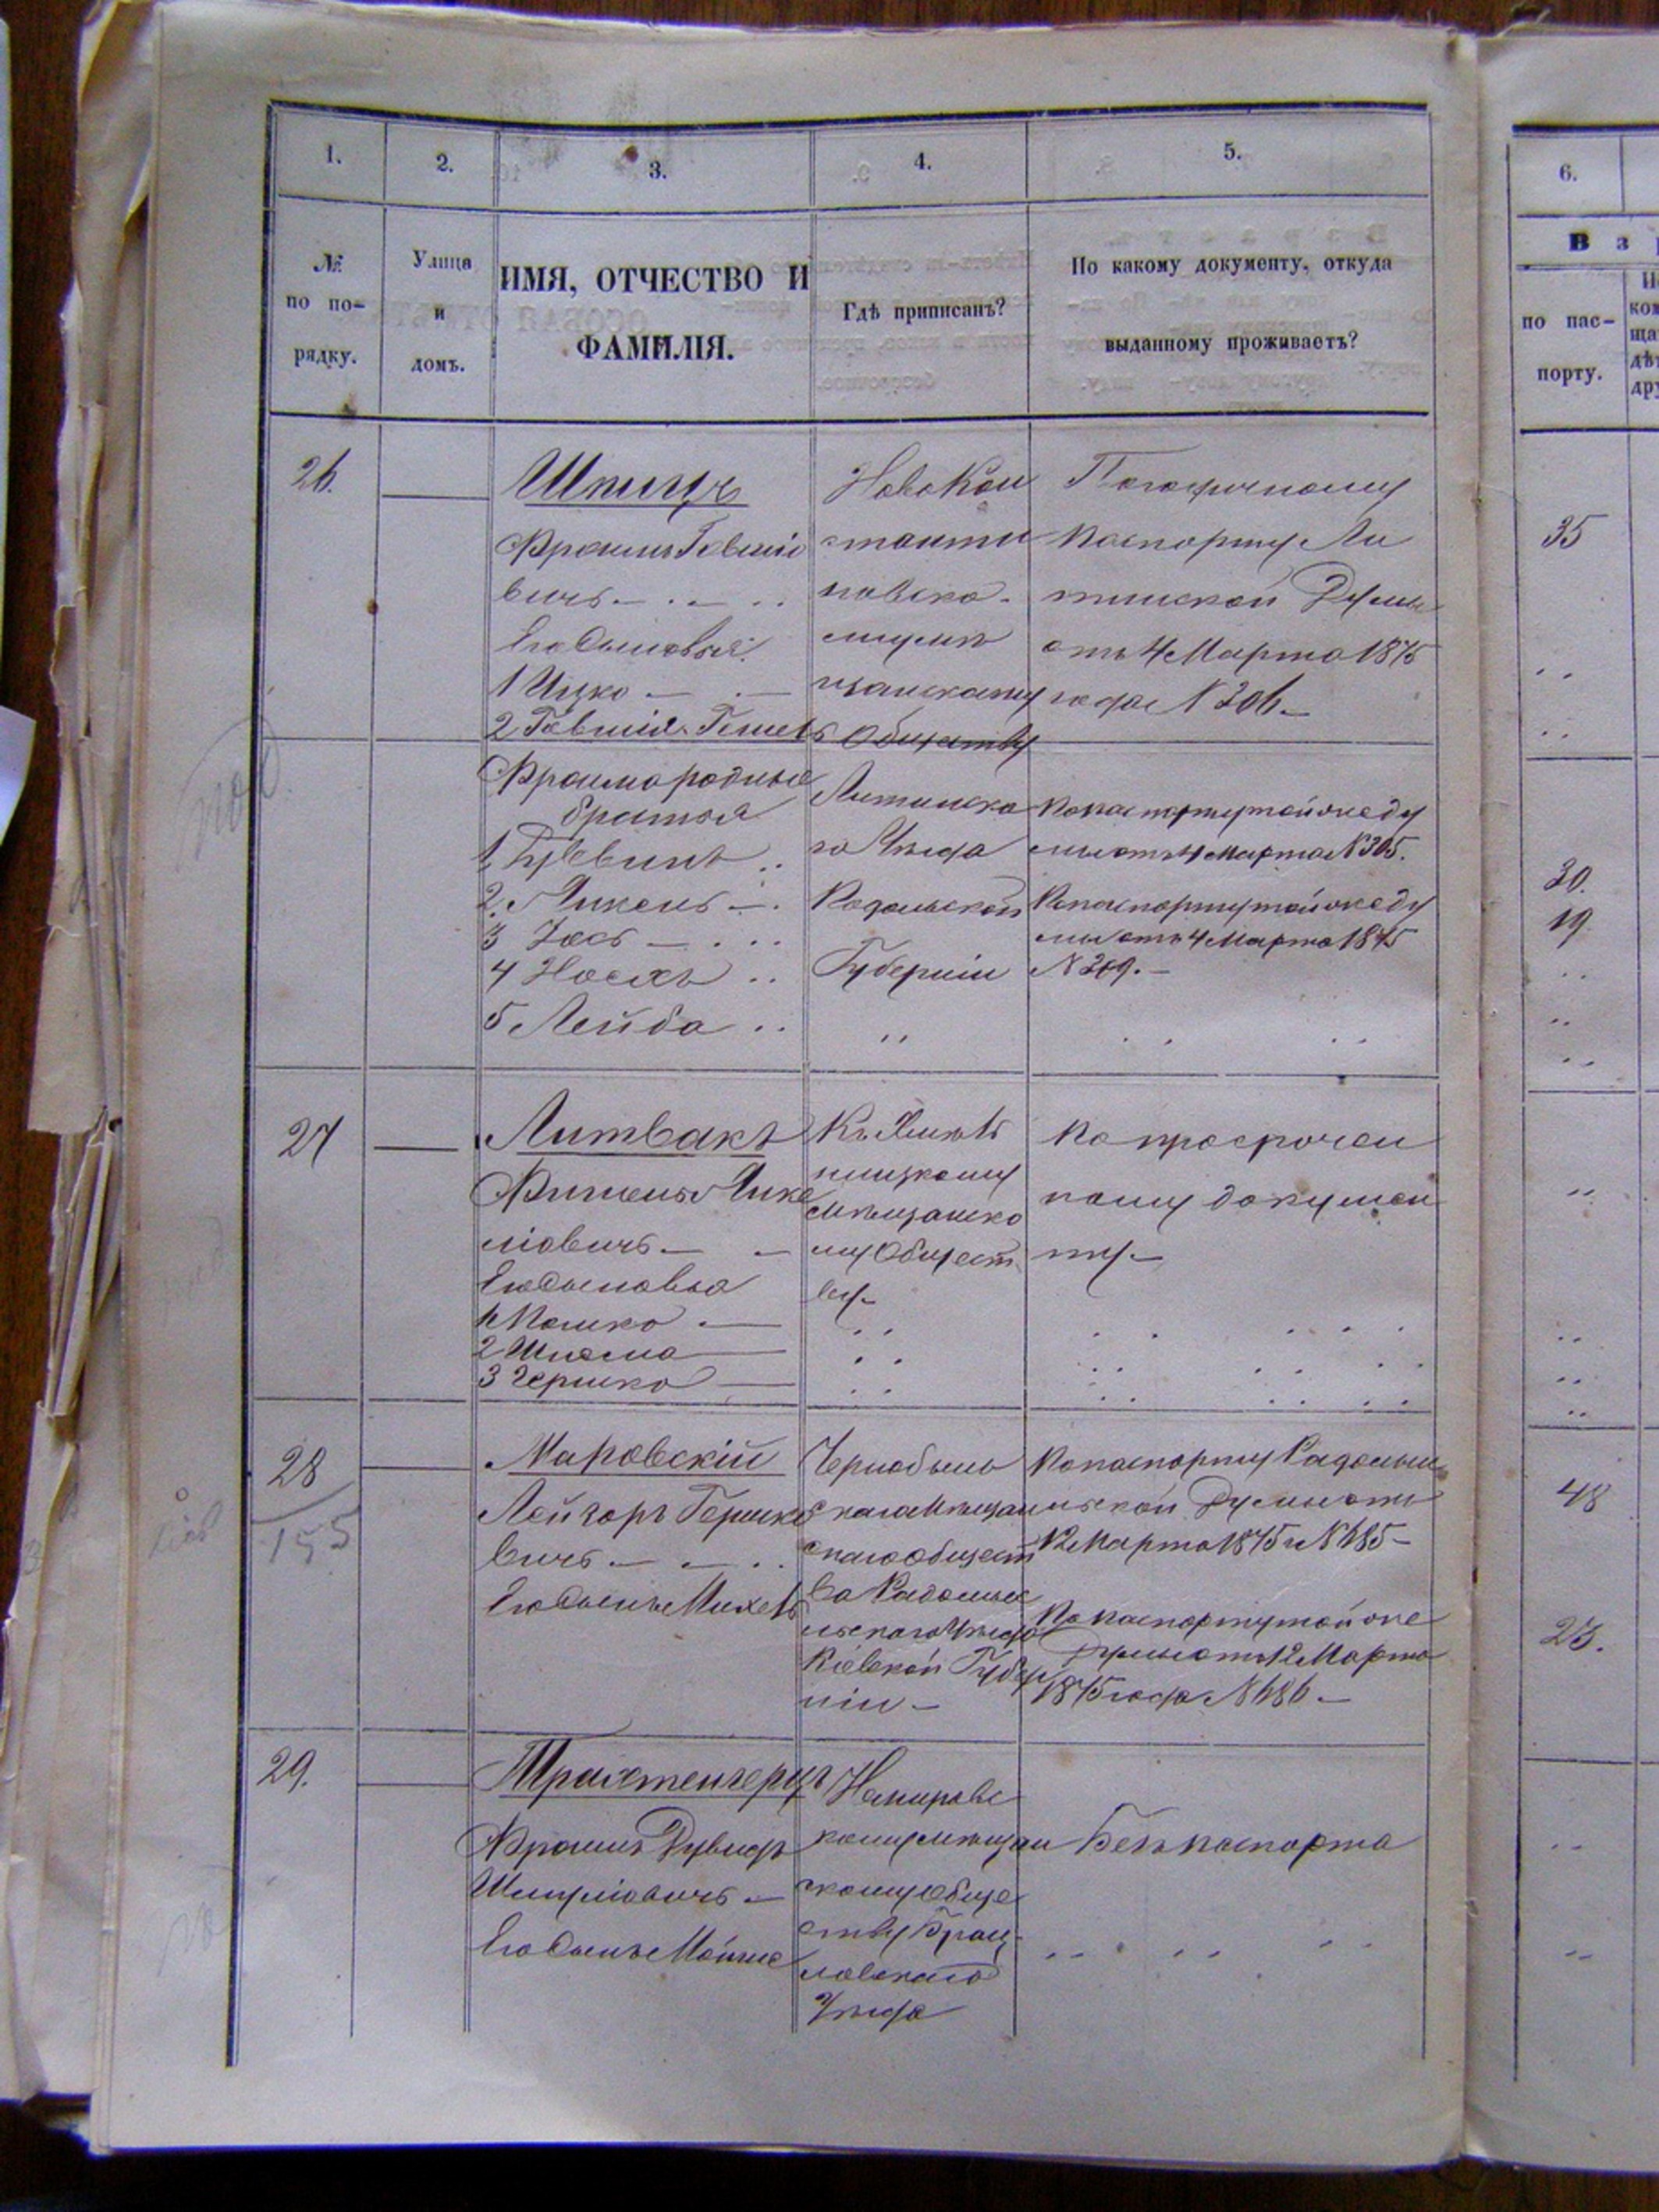 1.
2.
3.
4.
5.
6.
№ по по-
рядку.
Улица
и
домъ.
ИМЯ, ОТЧЕСТВО И
ФАМИЛІЯ.
Гдѣ приписанъ?
По какому документу, откуда
выданному проживаетъ?
В з р
по пас-
порту.
26.
Шпицъ
Фроимъ Гевшіо
вичъ
Его сыновья:
1 Ицко
2 Гевшія-Гешель
Новокон
станти
новско-
му мѣ
щанскому
Обществу
Погодичному
паспорту Ли
тинской Думы
отъ 4 Марта 1875
года N 306
35
Фроима родные
братья
2. Янкель
3 Іось
4 Носихъ
5 Лейба
Литинска
го Уѣзда
Подольской
Губерніи
по паспорту той же ду
мы отъ 4 Марта N 305.
По паспорту той же ду
мы отъ 4 Марта 1875
30.
19
27
Литвакъ
Фишель Янке
ліовичъ
Его сыновья
1 Мошко
2 Шлема
3 Гершко
Къ Хмѣль
ницкому
мѣщанско
му Общест
ву
По просрочен
ному докумен
ту
28
155
Маровскій
Лейзоръ Гершко
вичъ
Его сынъ Михель
Чернобыль
скаго Мѣщан
скаго Общест
ва Радомыс
льскаго Уѣзда
Кіевской Губер
ніи
По паспорту Радомы
сльской Думы отъ
12 Марта 1875 г N 685
По паспорту той же
Думы отъ 12 Марта
1875 года N 686
48
23.
29.
Трахтенгерцъ
Фроимъ Дувидъ
Шмуліовичъ
Его сынъ Мойше
Немировс
кому мѣщан
скому Обще
ству Брац-
лавскаго
Уѣзда
Безъ паспорта